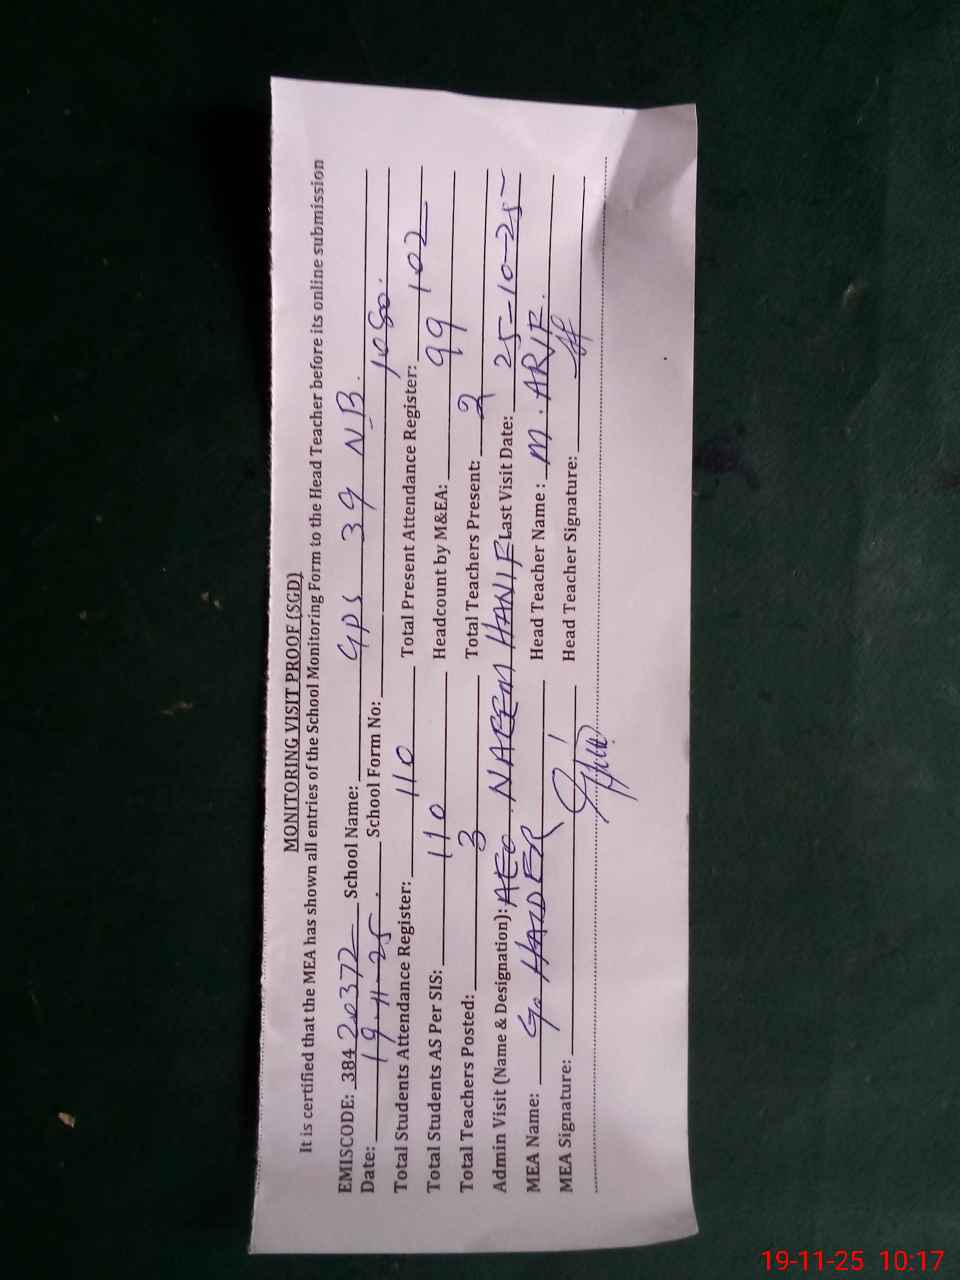 MONITORING VISIT PROOF (SGD)
It is certified that the MEA has shown all entries of the School Monitoring Form to the Head Teacher before its online submission
EMISCODE: 384 20372 School Name: GPS 39 NB.
Date: 19-11-25. School Form No: 1080.
Total Students Attendance Register: 110 Total Present Attendance Register: 102
Total Students AS Per SIS: 110 Headcount by M&EA: 99
Total Teachers Posted: 3 Total Teachers Present: 2
Admin Visit (Name & Designation): AEO NAEEM HANIF Last Visit Date: 25-10-25
MEA Name: G. HAIDER Head Teacher Name: M. ARIF.
MEA Signature: Head Teacher Signature:
19-11-25 10:17